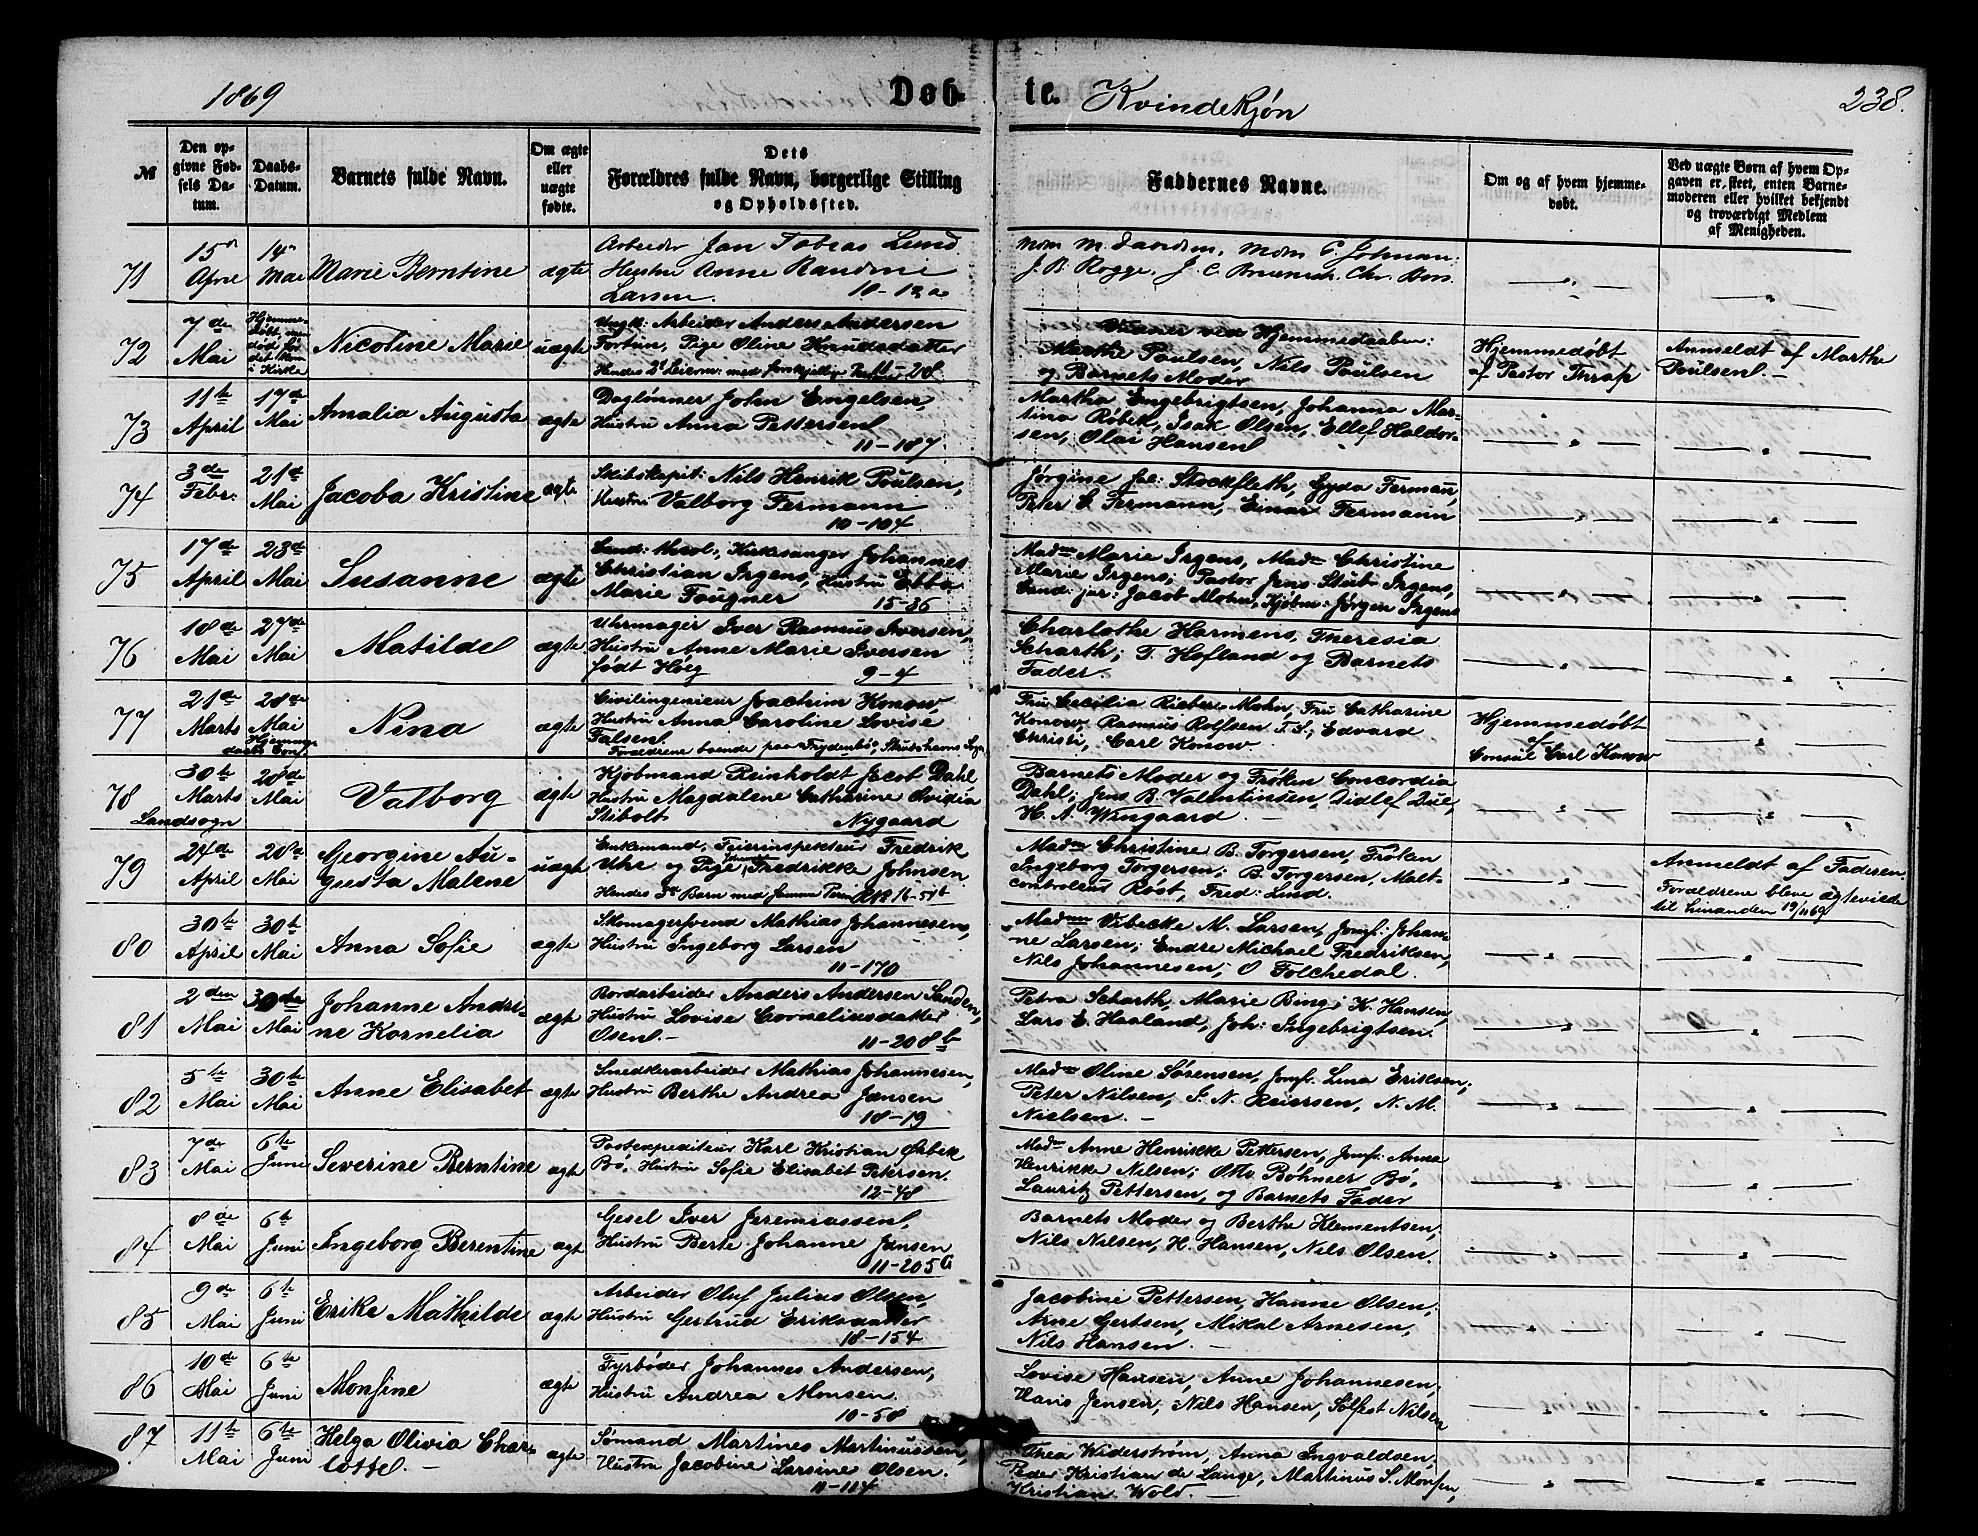 1869
Døb-
te.
Kvindekjøn
238.
№
Den op-
givne Fød-
sels Da-
tum.
Daabs-
Datum.
Barnets fulde Navn.
Om ægte
eller
uægte
fødte.
Dets
Forældres fulde Navn, borgerlige Stilling
og Opholdssted.
Faddernes Navne.
Om og af hvem hjemme-
døbt.
Ved uægte Børn af hvem Op-
gaven er skeet, enten Barne-
moderen eller hvilket bekjendt
og troværdigt Medlem
af Menigheden.
71
15
April
14
Mai
Marie Berntine
ægte
Arbeider Jan Tobias Lund
Hustru Anne Randine
Larsen. 10-12a
J. B. Rogge, J. C.
72
7de
Mai
Hjemme-
døbt, men
død før
det kom
i Kirke
Nicoline Marie
uægte
Ungk: Arbeider Anders Andersen
Fortun, Pige Oline Knudsdatter
Hendes 2t Leierm: med forskjellig 11-28.
Vidner ved Hjemmedaaben:
Marthe Poulsen, Nils Poulsen
og Barnets Moder
Hjemmedøbt
af Pastor Thrap
Anmeldt af Marthe
Poulsen. -
73
11te
April
17de
Mai
Amalia Augusta
ægte
Daglønner John Engelsen,
Hustru Anna Pettersen
11-187
Martha Engebrigtsen, Johanna Mar-
tina Røbek, Isak Olsen, Ellef Haldor-
sen, Olai Hansen
74
3de
Febr.
21de
Mai
Jacoba Kristine
ægte
Skibskapit: Nils Henrik Poulsen,
Hustru Valborg Fermann
10-104
Jørgine Stockfleth, Gyda Fermann,
Peter C. Fermann, Einar Fermann
75
17de
April
23de
Mai
Susanne
ægte
Cand: theol., Kirkesanger Johannes
Christian Irgens, Hustru Ebba
Marie Fougner 15-36
Madm Marie Irgens, Madm Christine
Marie Irgens; Pastor Jens Stub Irgens,
Cand: jur: Jacob Mohn, Kjøbm: Jørgen Irgens
76
18de
Mai
27de
Mai
Matilde
ægte
Uhrmager Iver Rasmus Iversen,
Hustru Anne Marie Iversen
født Høeg 9-4
Charlothe Harmens, Theresia
Scharth; T. Hofland og Barnets
Fader.
77
21de
Marts
28de
Mai
Nina
ægte
Civilingenieur Joachim Konow,
Hustru Anna Caroline Lovise
Falsen.
Forældrene boende paa Frydenbø, Strudshavns Sogn
Fru Cecilia Rieber Mohn, Fru Catharine
Konow; Rasmus Rolfsen F. S., Edvard
Christi, Carl Konow
Hjemmedøbt
af
Consul Carl Konow
78
Landsogn
30te
Marts
28de
Mai
Valborg
ægte
Kjøbmand Reinholdt Jacob Dahl
Hustru Magdalene Catharine Ovidia
Stibolt Nygaard
Barnets Moder og Frøken Concordia
Dahl; Jens B. Valentinsen, Didlef Due,
H. A. Wingaard. -
79
24de
April
28de
Mai
Georgine Au-
gusta Malene
uægte
Enkemand, Feierinspekteur Fredrik
Uhr og Pige Fredrikke Johnsen
Hendes 3t Barn med samme 16-51b
Madm Christine B. Torgersen, Frøken
Ingeborg Torgersen; B. Torgersen, Malt-
controlleur Rost, Fred: Lind.
Anmeldt af Faderen.
Forældrene bleve ægteviede
til hinanden 19/11 69
80
30te
April
30te
Mai
Anna Sofie
ægte
Skomagersvend Mathias Johannesens,
Hustru Ingeborg Larsen
11-170
Madm Vibecke M. Larsen, Jomf: Johan-
ne Larsen; Endre Michael Fredriksen,
Nils Johannesen, O Folchedal.
81
2den
Mai
30te
Mai
Johanne Andri-
ne Kornelia
ægte
Bordarbeider Anders Andersen Sanden,
Hustru Lovise Corneliusdatter
Osen. - 11-208b
Petra Scharth, Marie Bing; K. Hansen,
Lars E. Haaland, Joh: Ingebrigtsen.
82
5te
Mai
30te
Mai
Anne Elisabet
ægte
Smedkerarbeider Mathias Johannesen,
Hustru Berthe Andrea Jansen
18-19
Madm Oline Sørensen, Jomf: Lina Eriksen;
Peter Nilsen, S. N. Reiersen, N. M.
Nielsen. -
83
7de
Mai
6te
Juni
Severine Berntine
ægte
Postexpediteur Karl Kristian Ørbek
Bø, Hustru Sofie Elisabet Petersen.
12-48
Madm Anne Henrikke Pettersen, Jomf: Anna
Henrikke Nilsen; Otto Bøhmer Bø,
Lauritz Pettersen, og Barnets Fader
84
8de
Mai
6te
Juni
Ingeborg Berentine
ægte
Gesel Iver Jeremiassen,
Hustru Berte Johanne Jansen
11-205
Barnets Moder og Berthe Klementsen,
Nils Nilsen, H. Hansen, Nils Olsen.
85
9de
Mai
6te
Juni
Erike Mathilde
ægte
Arbeider Oluf Julius Olsen,
Hustru Gertrud Eriksdatter
18-154
Jacobine Pettersen, Hanne Olsen,
Arne Gertsen, Mikal Arnesen,
Nils Hansen. -
86
10de
Mai
6te
Juni
Monsine
ægte
Fyrbøder Johannes Andersen,
Hustru Andrea Monsen.
10-58
Lovise Hansen, Anne Johannesen,
Hans Jensen, Nils Hansen, Sølfest Nilsen
87
11te
Mai
6te
Juni
Helga Olivia Char-
lotte. -
ægte
Sømand Martines Martinussen,
Hustru Jacobine Larsine Olsen.
11-114
Thea Widerstrøm, Anna Ingvaldsen,
Peder Kristian de Lange, Martinus S. Monsen,
Kristian Wold. -